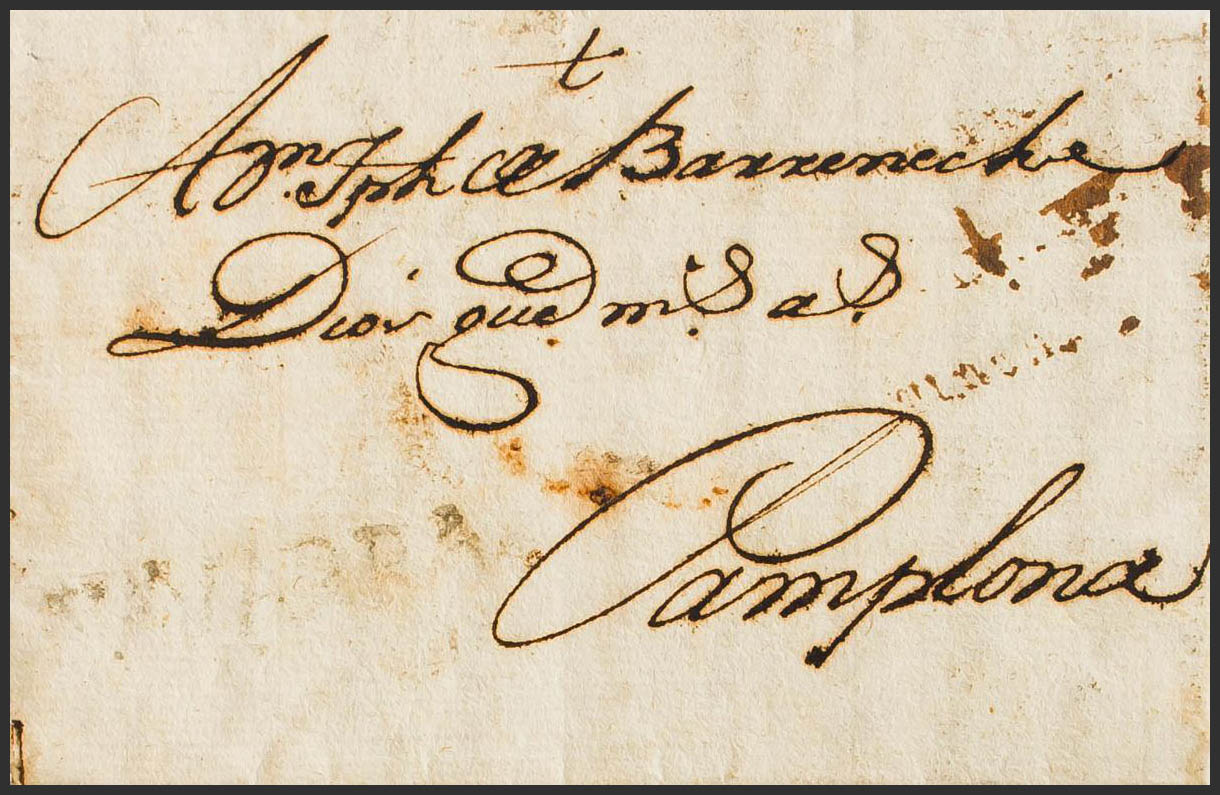 †
A Dn. Jph de Barreneche
Dios gue ms. as.
Pamplona